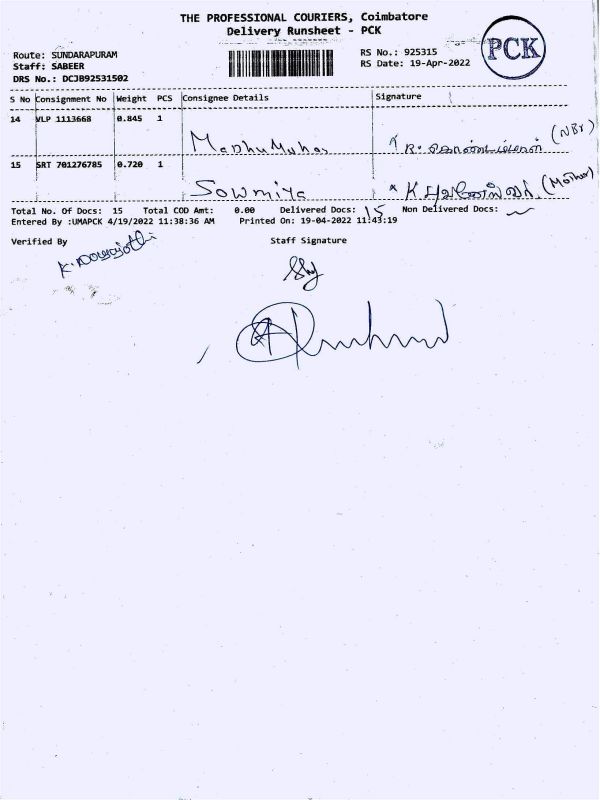 THE PROFESSIONAL COURIERS, Coimbatore
Delivery Runsheet - PCK
PCK
Route: SUNDARAPURAM
Staff: SABEER
DRS No.: DCJB92531502
RS No.: 925315
RS Date: 19-Apr-2022
S No Consignment No Weight PCS Consignee Details Signature
14 VLP 1113668 0.845 1
(NBr)
15 SRT 701276785 0.720 1
Sowmiya (Mother)
Total No. Of Docs: 15 Total COD Amt: 0.00 Delivered Docs: 15 Non Delivered Docs:
Entered By :UMAPCK 4/19/2022 11:38:36 AM Printed On: 19-04-2022 11:43:19
Verified By Staff Signature